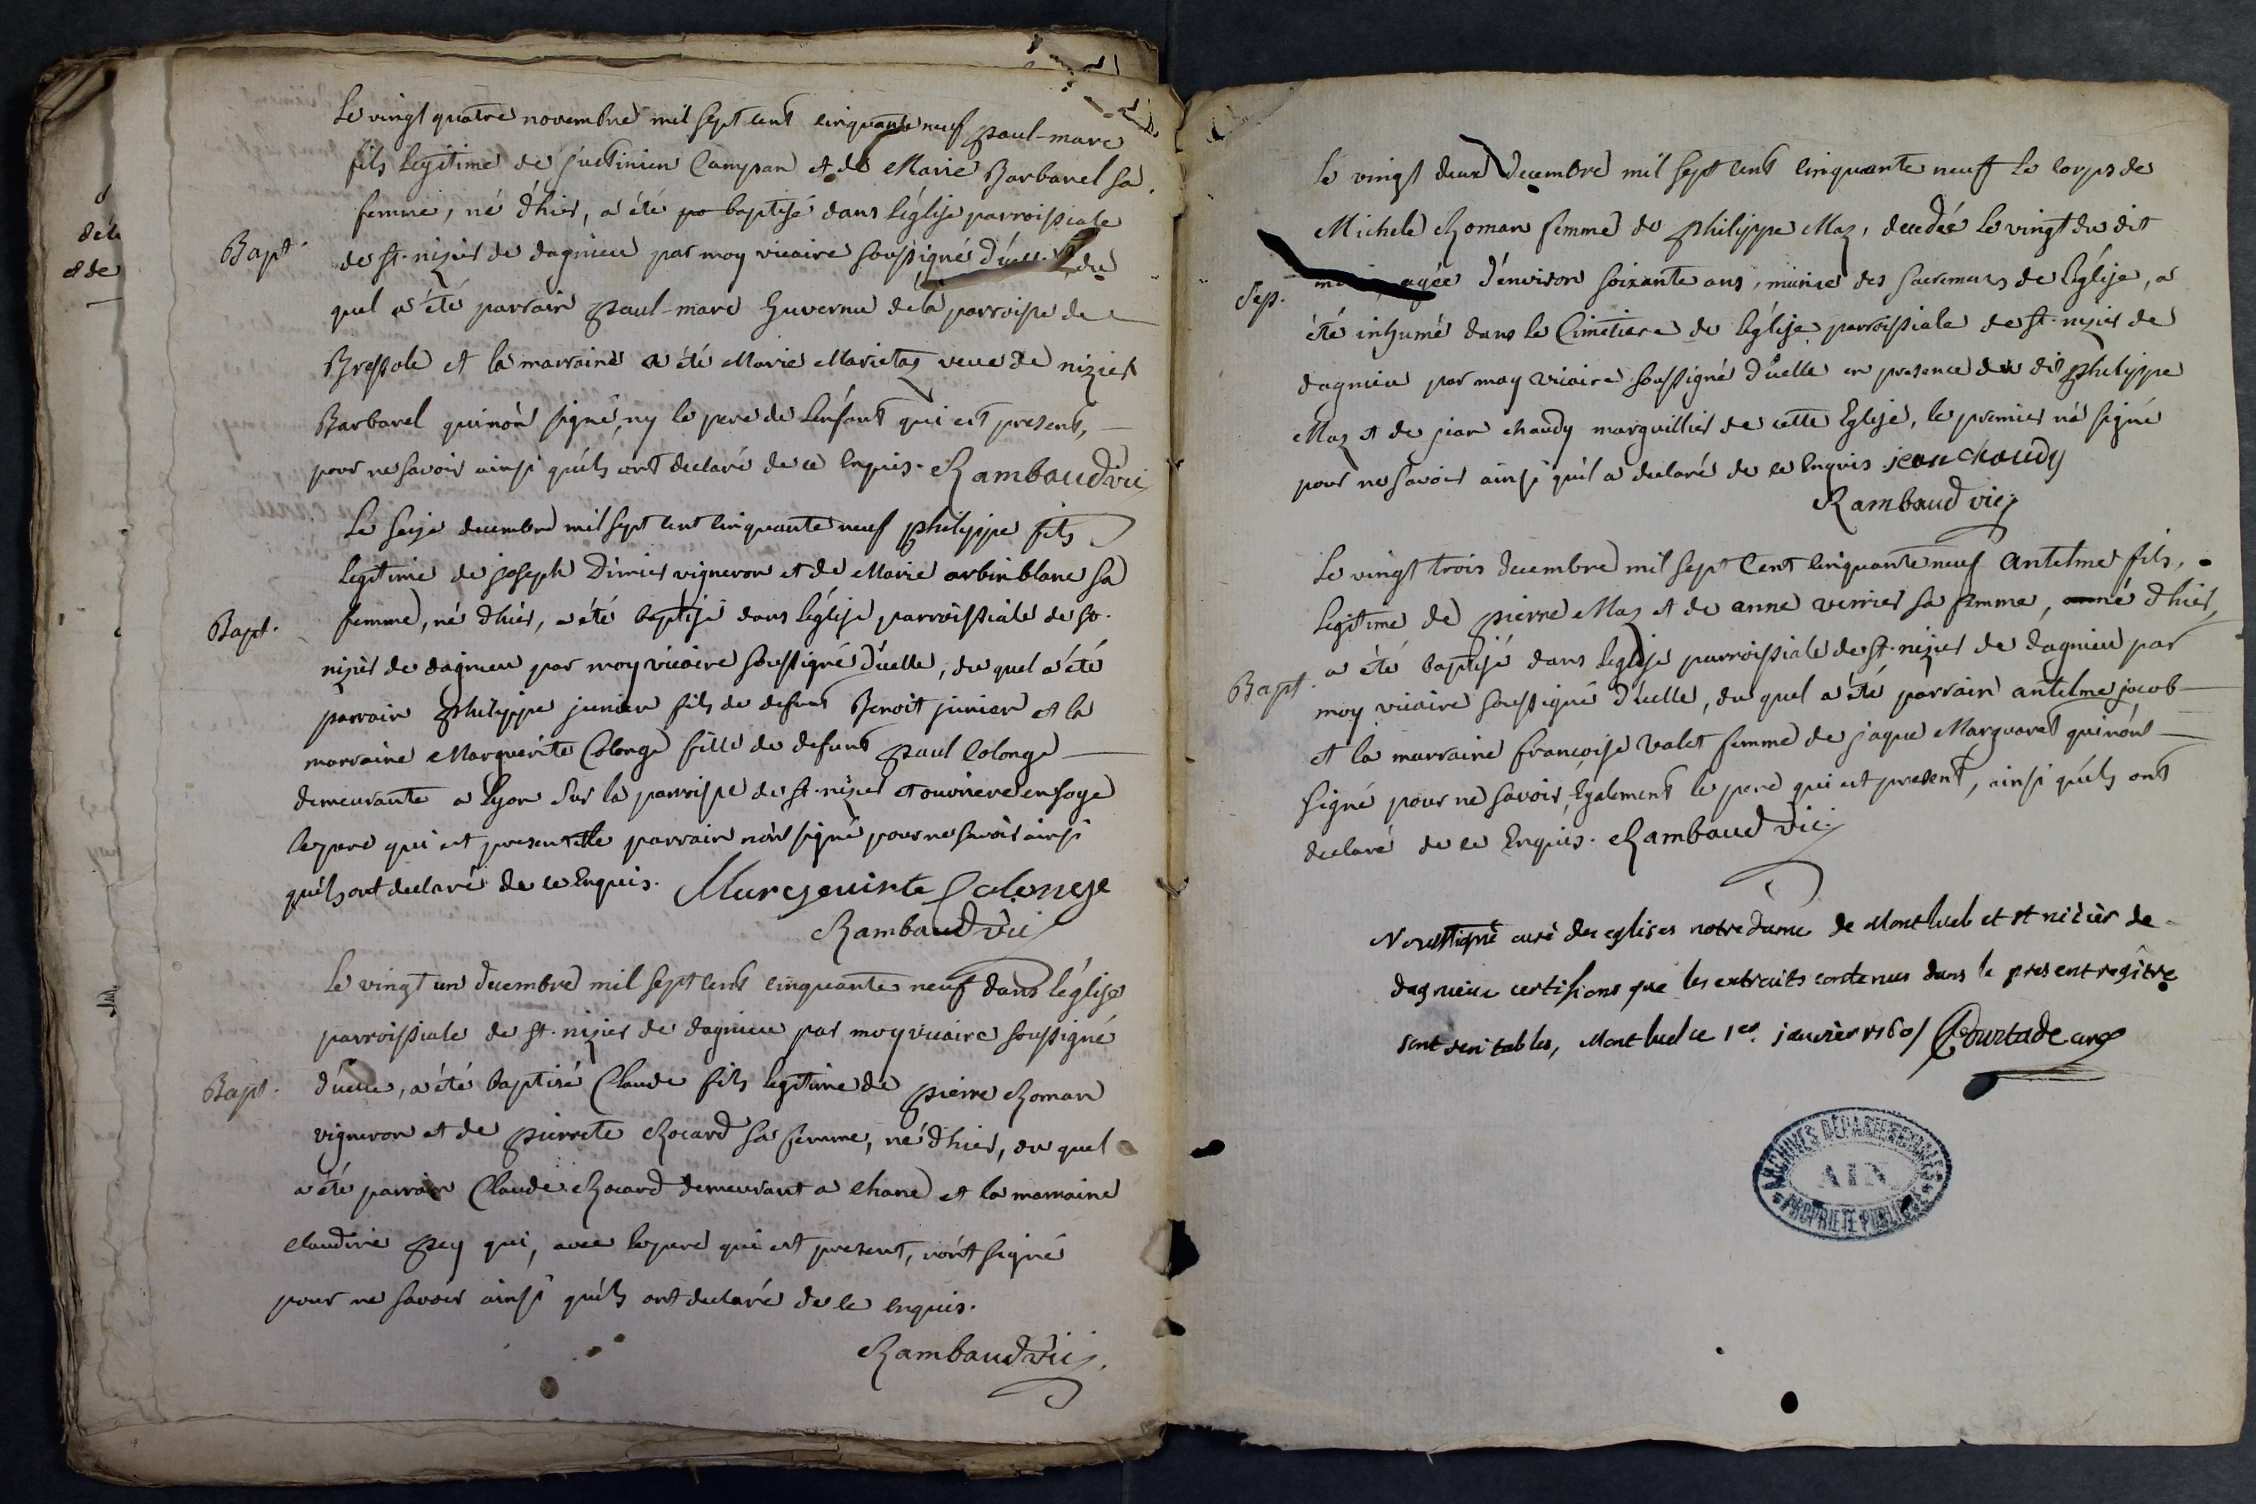 Le vingt quatre novembre mil sept cent cinquante neuf paul-marc
fils legitime de justinien Campan et de Marie Barbarel sa
femme, né d'hier, a été po baptisé dans l'église parroissiale
Bapt.
de st. nizier de dagnieu par moy vicaire soussigné d'icelle, du
quel a été parrain paul-marc Guvernu de la parroisse de
Bressole et la marraine a été Marie Marietaz veuve de nizier
Barbarel qui n'ont signé, ny le pere de l'enfant qui est present,
pour ne savoir ainsi qu'ils ont declaré de ce Enquis. Rambaud vic
Le seize decembre mil sept cent cinquante neuf philippe fils
legitime de joseph Dimier vigneron et de Marie arbin blanc sa
Bapt.
femme, né d'hier, a été baptisé dans l'église parroissiale de st.
nizier de dagnieu par moy vicaire soussigné d'icelle, du quel a été
parrain philippe junier fils de defunt Benoit junier et la
marraine Marguerite Colonge fille de defunt paul Colonge
demeurante a Lyon sur la parroisse de st. nizier et ouvriere en soye
le pere qui est present et le parrain n'ont signé pour ne savoir ainsi
qu'ils ont declaré de ce Enquis. Marguerite Colonge
Rambaud vic
Le vingt un decembre mil sept cent cinquante neuf dans l'église
parroissiale de st. nizier de dagnieu par moy vicaire soussigné
Bapt.
d'icelle, a été baptisé Claude fils legitime de pierre Roman
vigneron et de pierrete Rocard sa femme, né d'hier, du quel
a été parrain Claude Rocard demeurant a Chane et la marraine
claudine pey qui, avec le pere qui est present, n'ont signé
pour ne savoir ainsi qu'ils ont declaré de ce enquis.
Rambaud vic.
Le vingt deux decembre mil sept cent cinquante neuf le corps de
Michele Roman femme de philippe Maz, decedée le vingt du dit
Sep.
agée d'environ soixante ans, munie des sacremens de l'église, a
été inhumé dans le Cimetiere de l'église parroissiale de st. nizier de
dagnieu par moy vicaire soussigné d'icelle en presence du dit philippe
Maz et de jean chaudy marguillier de cette Eglise, le premier n'a signé
pour ne savoir ainsi qu'il a declaré de ce Enquis. jean chaudy
Rambaud vic
Le vingt trois decembre mil sept Cent cinquante neuf antelme fils,
legitime de pierre Maz et de anne verrier sa femme, né d'hier,
Bapt.
a été baptisé dans l'église parroissiale de st. nizier de dagnieu par
moy vicaire soussigné d'icelle, du quel a été parrain antelme jacob
et la marraine francoise valet femme de jaque Marguaret qui n'ont
signé pour ne savoir, Egalement le pere qui est present, ainsi qu'ils ont
declaré de ce Enquis. Rambaud vic.
Noussigné curé des eglises notre dame de Montluel et st nizier de
dagnieu certifions que les extraits contenus dans le present registre
sont veritables, Montluel ce 1er. janvier 1760 / Courtade curé
ARCHIVES DÉPARTEMENTALES
AIN
PROPRIÉTÉ PUBLIQUE